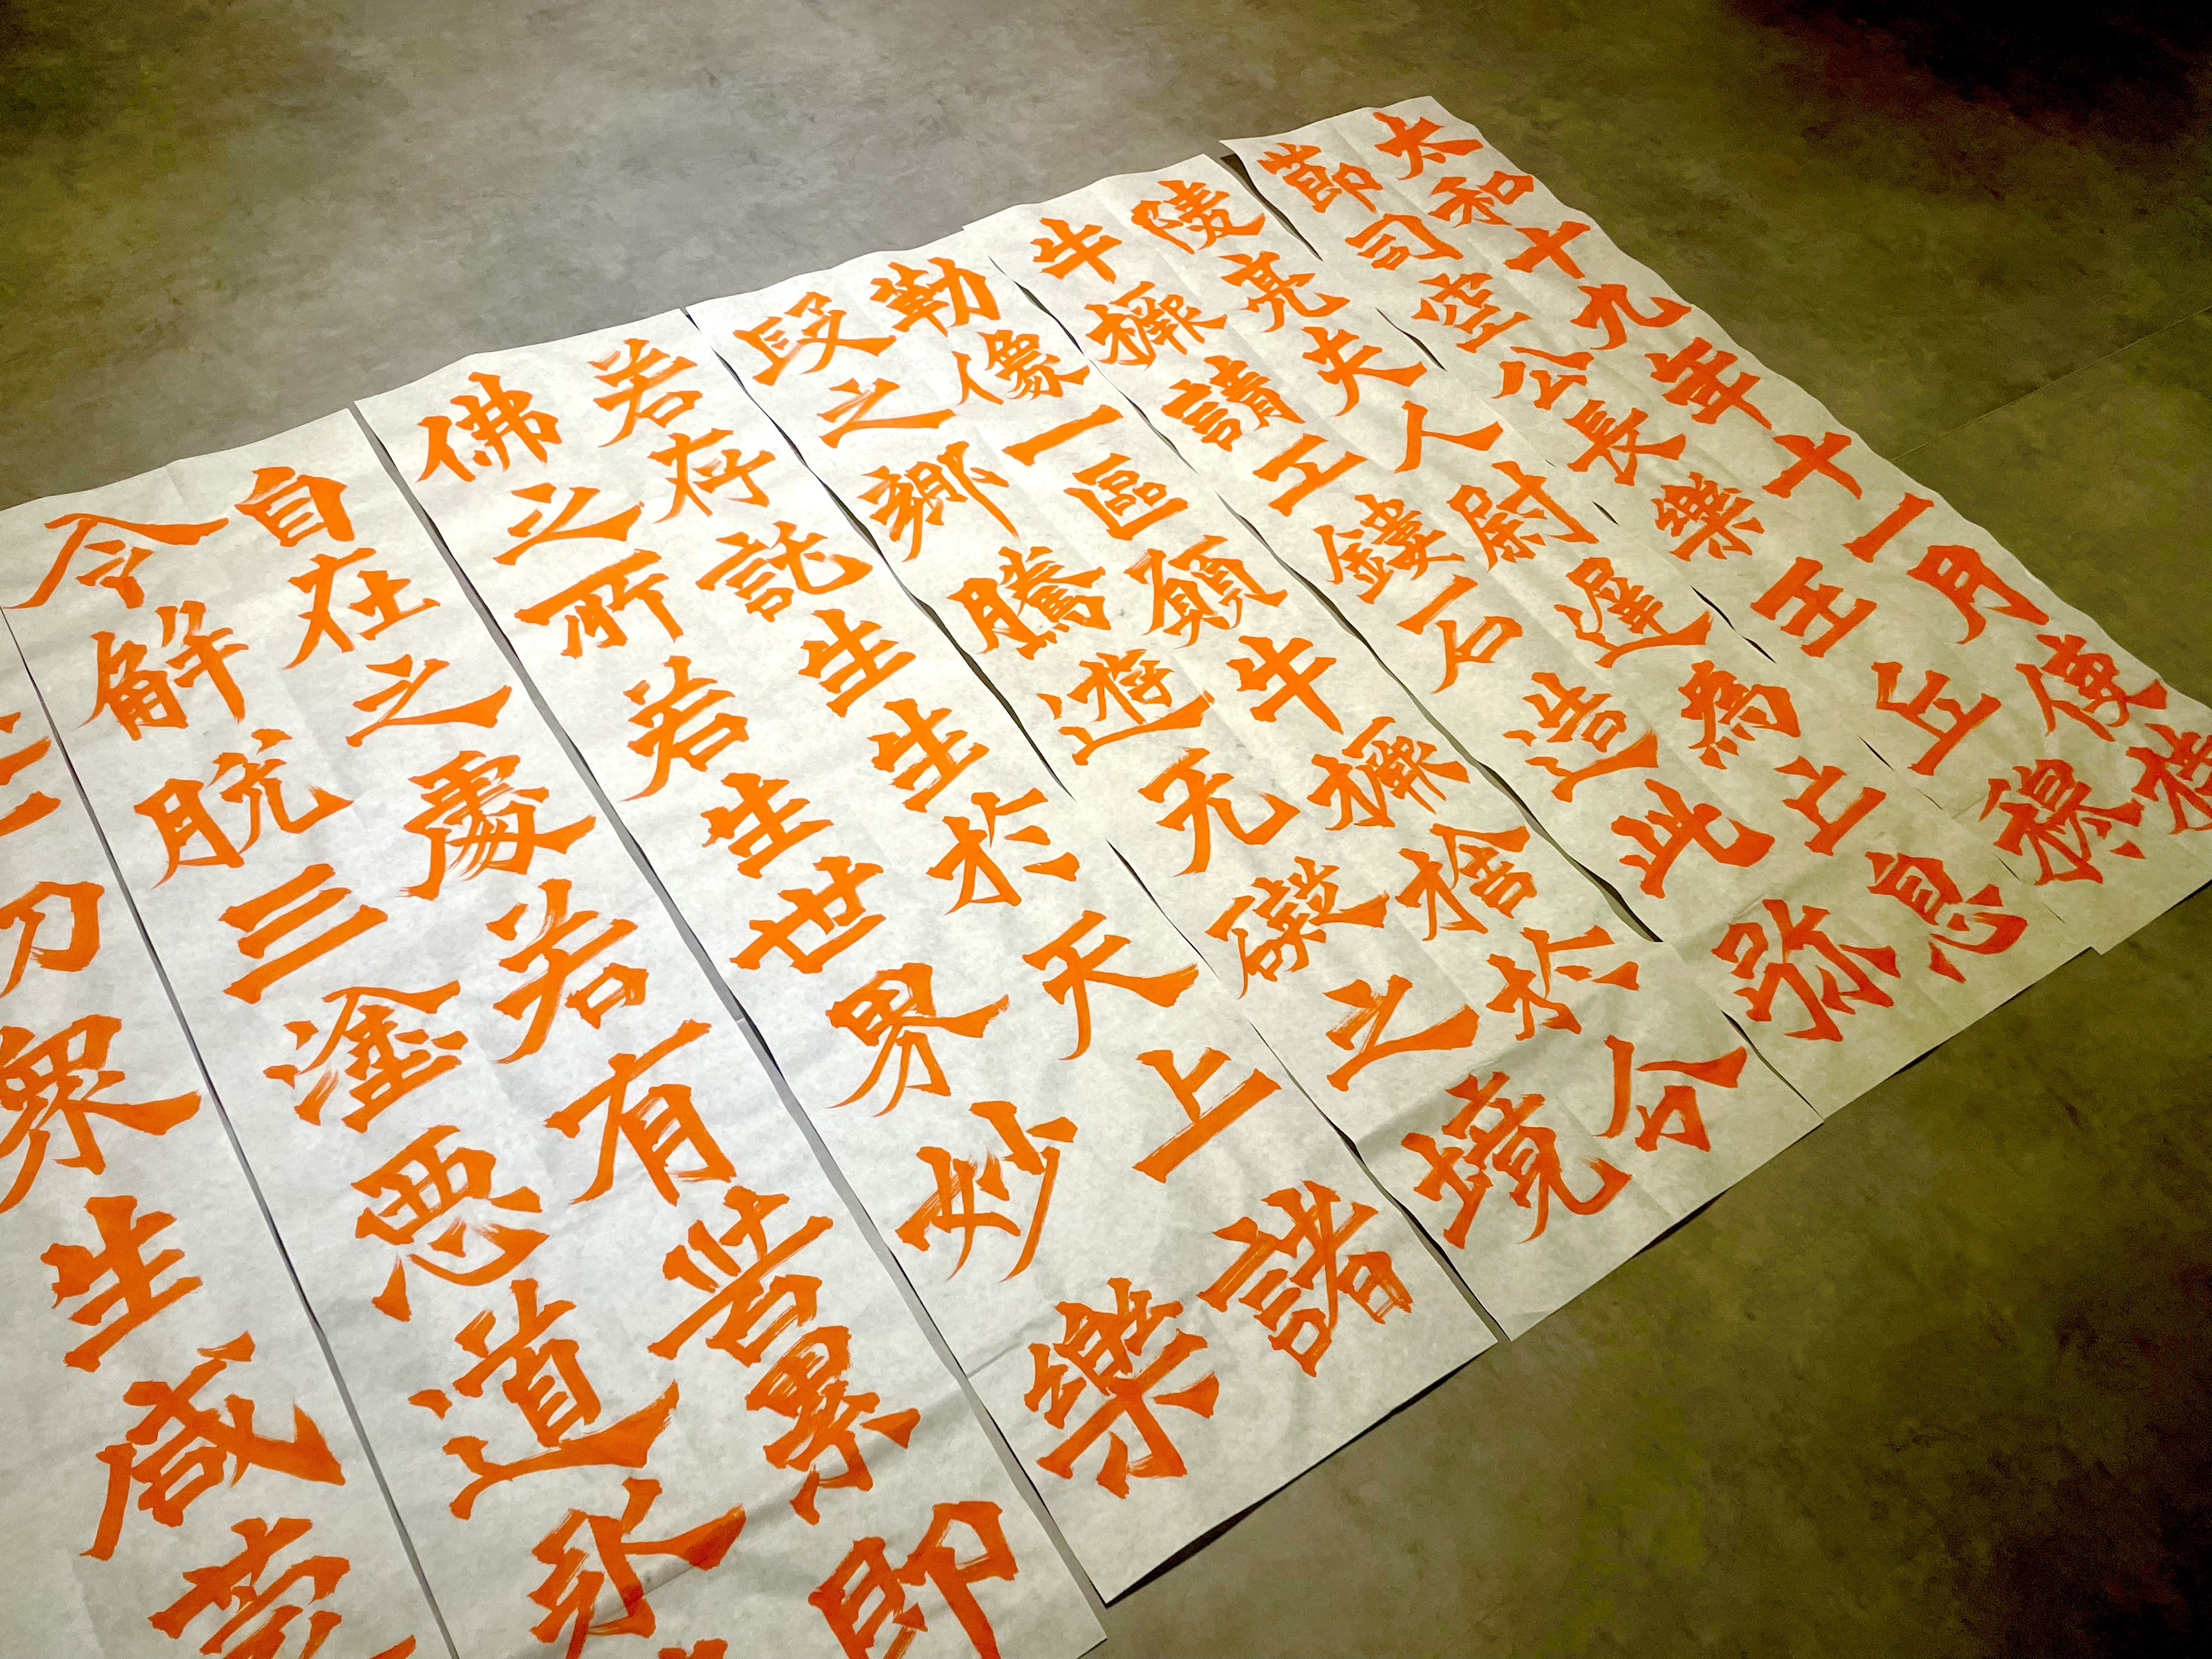 太和十九年十一月使持
節司空公長樂王丘穆
陵亮夫人尉遲為亡息
牛橛請工鏤石造此弥
勒像一區願牛橛捨於分
段之鄉騰遊无礙之境
若存託生生於天上諸
佛之所若生世界妙樂
自在之處若有苦累即
令解脫三塗惡道永
切眾生咸蒙